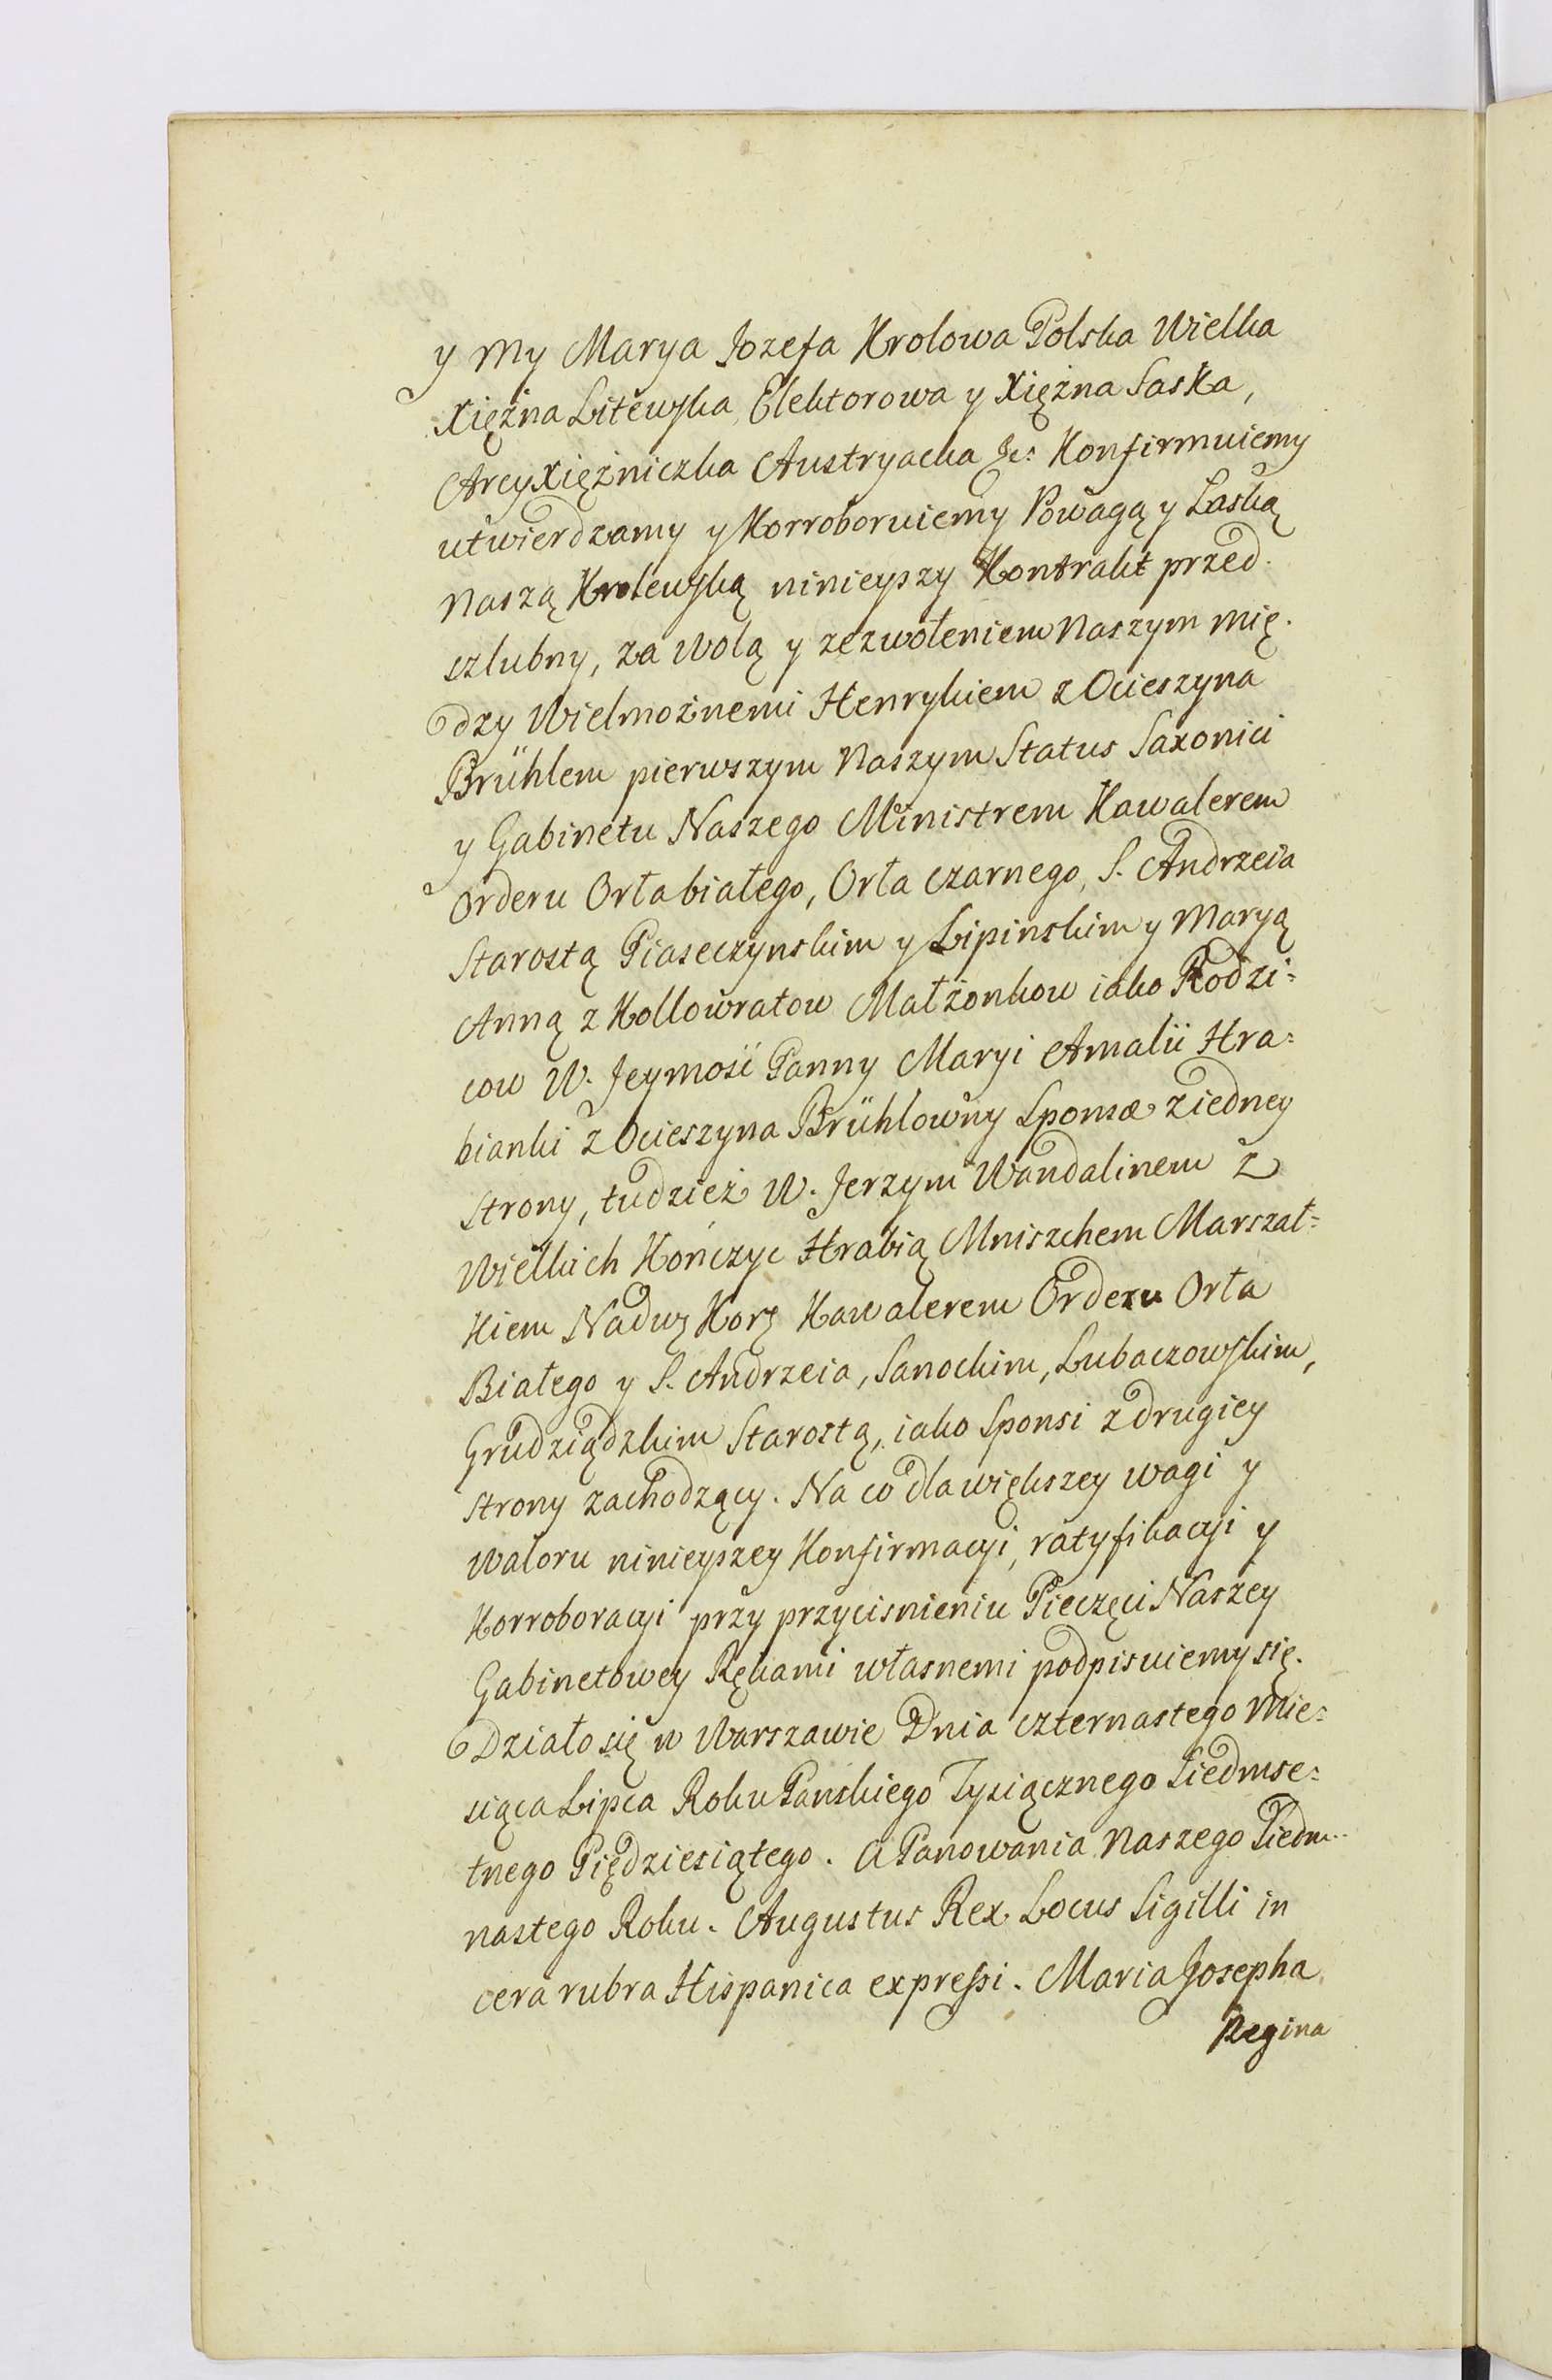 y My Marya Jozefa Krolowa Polska Wielka
Xiężna Litewska, Elektorowa y Xiężna Saska,
ArcyXiężniczka Austryacka &c: Konfirmuiemy
utwierdzamy y Korroboruiemy Powagą y Laską
Naszą Krolewską ninieyszy Kontrakt przed-
szlubny, za Wolą y zezwoleniem Naszym mię-
dzy Wielmożnemi Henrykiem z Ocieszyna
Brühlem pierwszym Naszym Status Saxonici
y Gabinetu Naszego Ministrem Kawalerem
Orderu Orła białego, Orła czarnego, S. Andrzeia
Starostą Piaseczynskim y Lipinskim y Maryą
Anną z Kollowratow Małżonkow iako Rodzi=
cow W. Jeymość Panny Maryi Amalii Hra=
bianki z Ocieszyna Brühlowny Sponsæ z iedney
Strony, tudzież W. Jerzym Wandalinem z
Wielkich Kończyc Hrabią Mniszchem Marszał=
kiem Nadwᷤ Korᷤ Kawalerem Orderu Orła
Białego y S. Andrzeia, Sanockim, Lubaczowskim,
Grudziądzkim Starostą, iako Sponsi z drugiey
strony zachodzący. Na co dla większey wagi y
waloru ninieyszey Konfirmacyi, ratyfikacyi y
Korroboracyi przy przycisnieniu Pieczęci Naszey
Gabinetowey Rękami własnemi podpisuiemy się.
Działo się w Warszawie Dnia czternastego Mie=
siąca Lipca Roku Panskiego Tysiącznego Siedmse=
tnego Piędziesiątego. A Panowania Naszego Siedm-
nastego Roku. Augustus Rex Locus Sigilli in
cera rubra Hispanica expressi. Maria Josepha
Regina